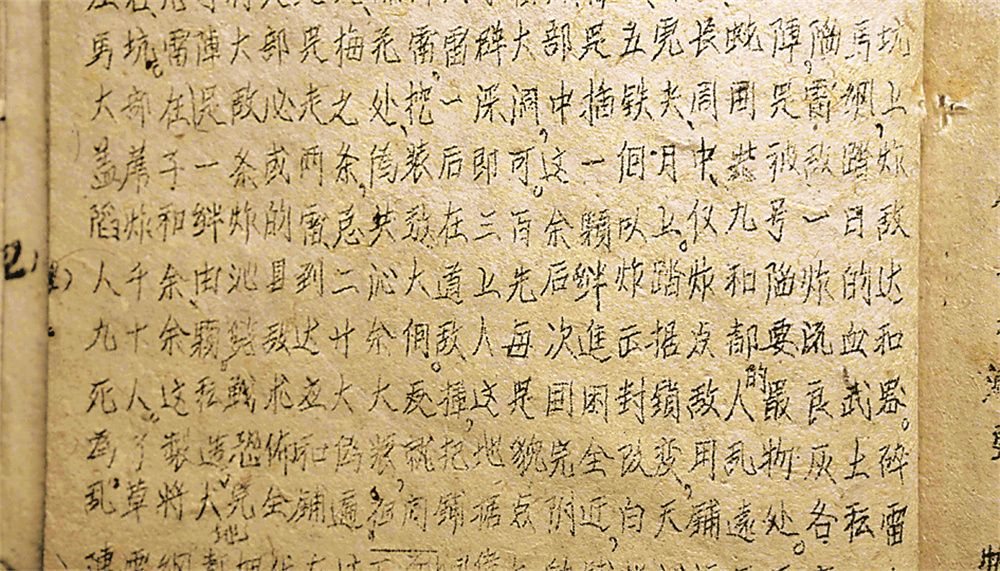 馬坑。雷陣大部是梅花雷。雷群大部是五虎長蛇陣，陷馬坑
大部在是敌必走之处，挖一深洞，中插铁夹，周围是雷網，上
盖蓆子一条或两条，偽装后即可。这一個月中，共被敌踏炸
陷炸和絆炸的雷总共数在三百余顆以上。仅九号一日敌
人千余，由沁县到二沁大道上先后絆炸踏炸和陷炸的达
九十余顆。斃敌达廿余個。敌人每次進出据点都要流血和
死人。这種战术应大大发揮，这是围困封鎖敌人的最良武器。
為了製造恐佈和偽裝，就把地貌完全改变，用乱物灰土碎
乱草将大地完全鋪遍。在周鋪据点附近，白天鋪遠处。各種雷